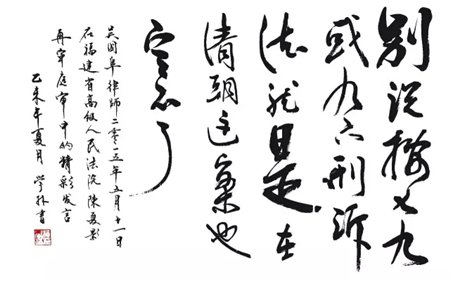 别说按七九
或九六刑诉
法就是在
清朝这案也
定不了
吴国阜律师二零一五年五月十一日
在福建省高级人民法院陈夏影
再审庭审中的精彩发言
乙未年夏月 学林书